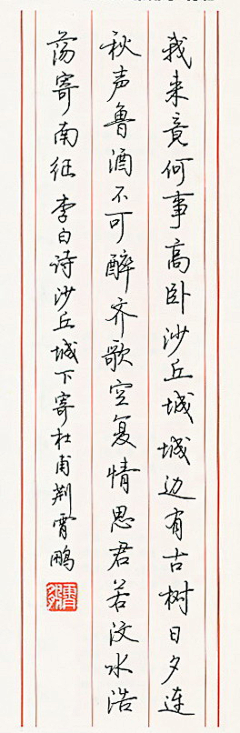 我来竟何事高卧沙丘城城边有古树日夕连
秋声鲁酒不可醉齐歌空复情思君若汶水浩
荡寄南征 李白诗沙丘城下寄杜甫荆霄鹏